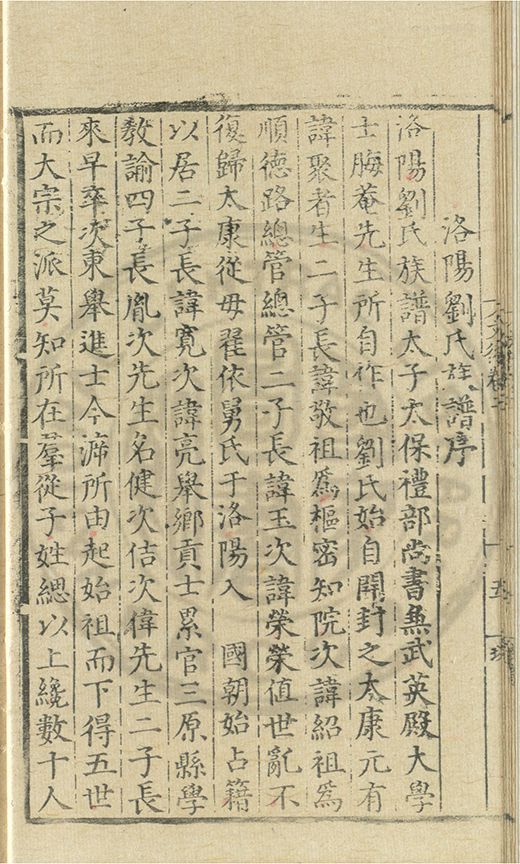 洛陽劉氏族譜序
洛陽劉氏族譜太子太保禮部尚書無武英殿大學
士晦菴先生所自作也劉氏始自開封之太康元有
諱聚者生二子長諱敬祖為樞密知院次諱紹祖為
順德路總管總管二子長諱玉次諱榮榮值世亂不
復歸太康從母翟依舅氏于洛陽入　國朝始占籍
以居二子長諱寬次諱亮舉鄉貢士累官三原縣學
教諭四子長胤次先生名健次佶次偉先生二子長
來早卒次東舉進士今泝所由起始祖而下得五世
而大宗之派莫知所在羣從子姓緦以上纔數十人